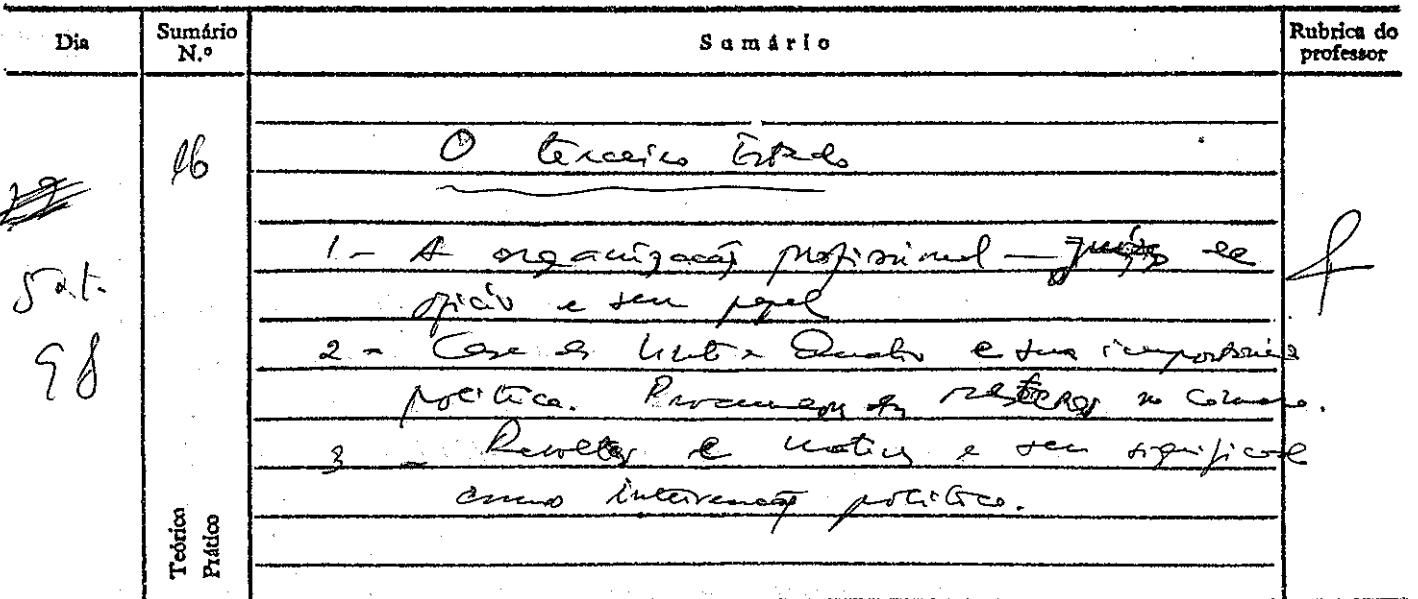 Dia
Sumário N.º
Sumário
Rubrica do professor
16
O terceiro Estado
1 - A organização profissional - Juízes de
ofício e seu papel
2 - Casa dos Vinte e Quatro e sua importância
política. Procuradores dos mesteres no
3 - Revoltas e motins e seu significado
como intervenção política.
98
Teórico
Prático